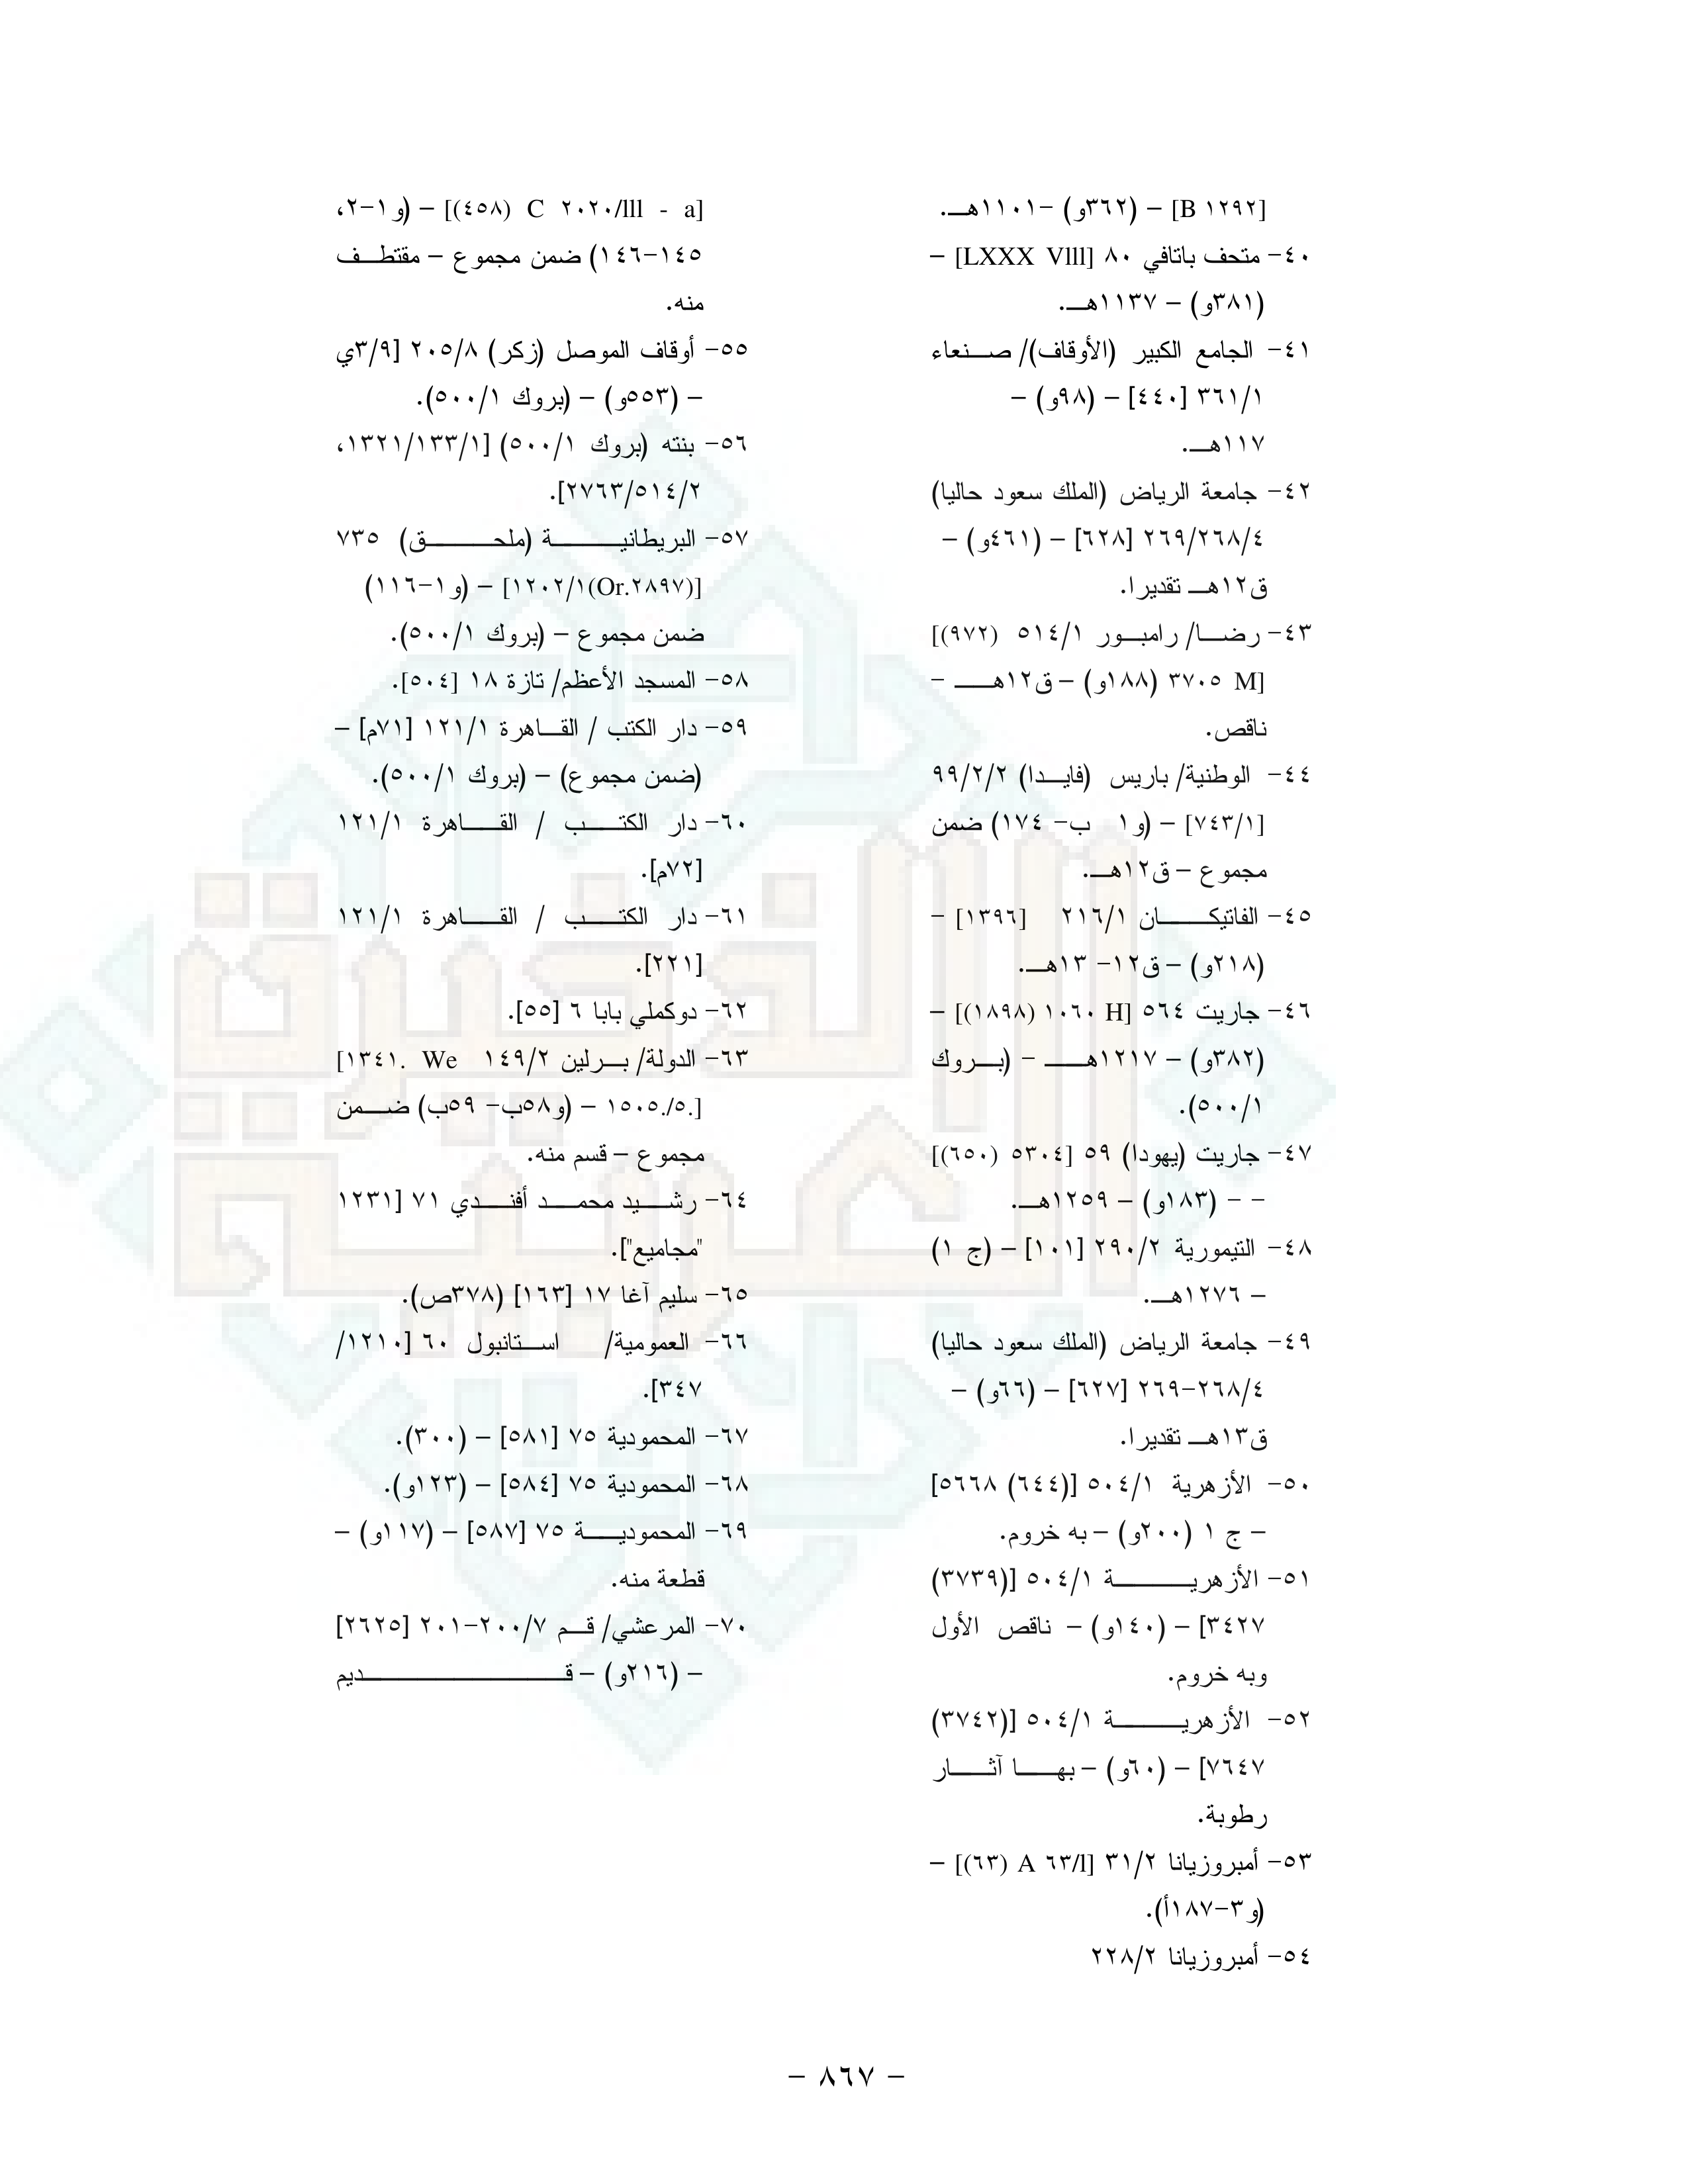 [B ١٢٩٢] – (٣٦٢و) –١١٠١هـ.
٤٠- متحف باتافي ٨٠ [LXXX Vlll] –
(٣٨١و) – ١١٣٧هـ.
٤١- الجامع الكبير (الأوقاف)/ صنعاء
٣٦١/١ [٤٤٠] – (٩٨و) –
١١٧هـ.
٤٢- جامعة الرياض (الملك سعود حاليا)
٢٦٩/٢٦٨/٤ [٦٢٨] – (٤٦١و) –
ق١٢هـ تقديرا.
٤٣- رضا/ رامبور ٥١٤/١ (٩٧٢)]
[M ٣٧٠٥ (١٨٨و) – ق١٢هـ –
ناقص.
٤٤- الوطنية/ باريس (فايدا) ٩٩/٢/٢
[٧٤٣/١] – (و١ ب- ١٧٤) ضمن
مجموع – ق١٢هـ.
٤٥- الفاتيكان ٢١٦/١ [١٣٩٦] –
(٢١٨و) – ق١٢- ١٣هـ.
٤٦- جاريت ٥٦٤ [H ١٠٦٠ (١٨٩٨)] –
(٣٨٢و) – ١٢١٧هـ – (بروك
٥٠٠/١).
٤٧- جاريت (يهودا) ٥٩ [٥٣٠٤ (٦٥٠)]
– – (١٨٣و) – ١٢٥٩هـ.
٤٨- التيمورية ٢٩٠/٢ [١٠١] – (ج ١)
– ١٢٧٦هـ.
٤٩- جامعة الرياض (الملك سعود حاليا)
٢٦٨/٤-٢٦٩ [٦٢٧] – (٦٦و) –
ق١٣هـ تقديرا.
٥٠- الأزهرية ٥٠٤/١ [(٦٤٤) ٥٦٦٨]
– ج ١ (٢٠٠و) – به خروم.
٥١- الأزهرية ٥٠٤/١ [(٣٧٣٩)
٣٤٢٧] – (١٤٠و) – ناقص الأول
وبه خروم.
٥٢- الأزهرية ٥٠٤/١ [(٣٧٤٢)
٧٦٤٧] – (٦٠و) – بها آثار
رطوبة.
٥٣- أمبروزيانا ٣١/٢ [A ٦٣/l (٦٣)] –
(و٣-١٨٧أ).
٥٤- أمبروزيانا ٢٢٨/٢
[C ٢٠٢٠/lll - a (٤٥٨)] – (و١-٢،
١٤٥-١٤٦) ضمن مجموع – مقتطف
منه.
٥٥- أوقاف الموصل (زكر) ٢٠٥/٨ [٣/٩ي
– (٥٥٣و) – (بروك ٥٠٠/١).
٥٦- بنته (بروك ٥٠٠/١) [١٣٢١/١٣٣/١،
٢٧٦٣/٥١٤/٢].
٥٧- البريطانية (ملحق) ٧٣٥
[١٢٠٢/١(Or.٢٨٩٧)] – (و١-١١٦)
ضمن مجموع – (بروك ٥٠٠/١).
٥٨- المسجد الأعظم/ تازة ١٨ [٥٠٤].
٥٩- دار الكتب / القاهرة ١٢١/١ [٧١م] –
(ضمن مجموع) – (بروك ٥٠٠/١).
٦٠- دار الكتب / القاهرة ١٢١/١
[٧٢م].
٦١- دار الكتب / القاهرة ١٢١/١
[٢٢١].
٦٢- دوكملي بابا ٦ [٥٥].
٦٣- الدولة/ برلين ١٤٩/٢ We .١٣٤١]
[.٥/.١٥٠٥ – (و٥٨ب- ٥٩ب) ضمن
مجموع – قسم منه.
٦٤- رشيد محمد أفندي ٧١ [١٢٣١
"مجاميع"].
٦٥- سليم آغا ١٧ [١٦٣] (٣٧٨ص).
٦٦- العمومية/ استانبول ٦٠ [١٢١٠/
٣٤٧].
٦٧- المحمودية ٧٥ [٥٨١] – (٣٠٠).
٦٨- المحمودية ٧٥ [٥٨٤] – (١٢٣و).
٦٩- المحمودية ٧٥ [٥٨٧] – (١١٧و) –
قطعة منه.
٧٠- المرعشي/ قم ٢٠٠/٧-٢٠١ [٢٦٢٥]
– (٢١٦و) – قديم
– ٨٦٧ –